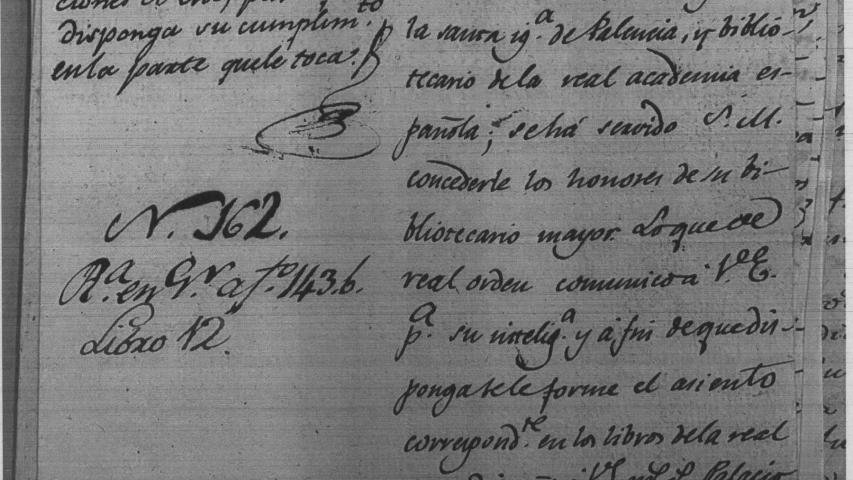 disponga su cumplim.to
en la parte que le toca.
N. 162.
R.a en G.r a fo. 143.b.
Libro 12.
la santa ig.a de Palencia, y biblio-
tecario de la real academia es-
pañola; se há servido S. M.
concederle los honores de su bi-
bliotecario mayor. Lo que de
real orden comunico á V.E.
p.a su intelig.a y á fin de que dis-
ponga se le forme el asiento
correspond.te en los libros de la real
Palacio